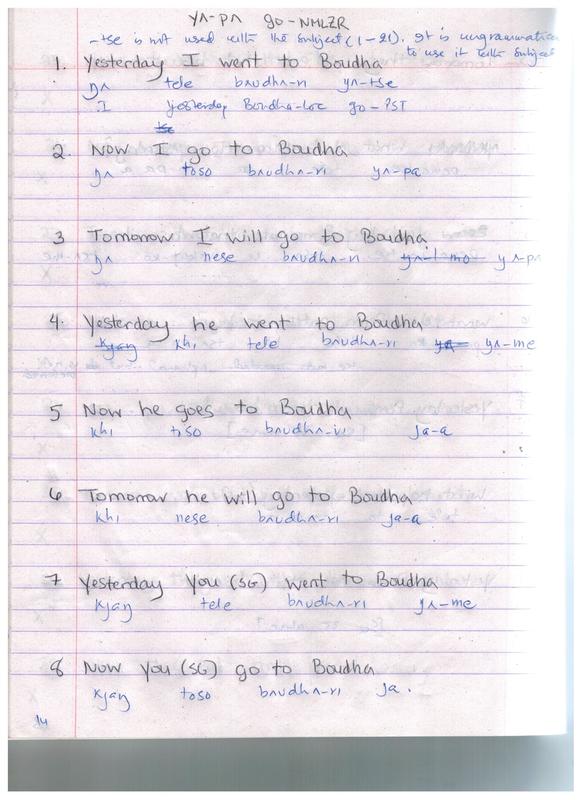 yʌ-pʌ go-NMLZR
-tse is not used with the subject (1-21). It is ungrammatical
to use it with subject
1. Yesterday I went to Boudha
ŋʌ tele bʌudhʌ-ri yʌ-tse
I yesterday Boudha-Loc go-PST
2. Now I go to Boudha
ŋʌ toso bʌudhʌ-ri yʌ-pa
3 Tomorrow I will go to Boudha
ŋʌ nese bʌudhʌ-ri yʌ-pʌ
4. Yesterday he went to Boudha
khi tele bʌudhʌ-ri yʌ-me
5 Now he goes to Boudha
khi toso bʌudhʌ-ri ja-a
6 Tomorrow he will go to Boudha
khi nese bʌudhʌ-ri ja-a
7 Yesterday You (SG) went to Boudha
kjaŋ tele bʌudhʌ-ri yʌ-me
8 Now you (SG) go to Boudha
kjaŋ toso bʌudhʌ-ri ja.
14